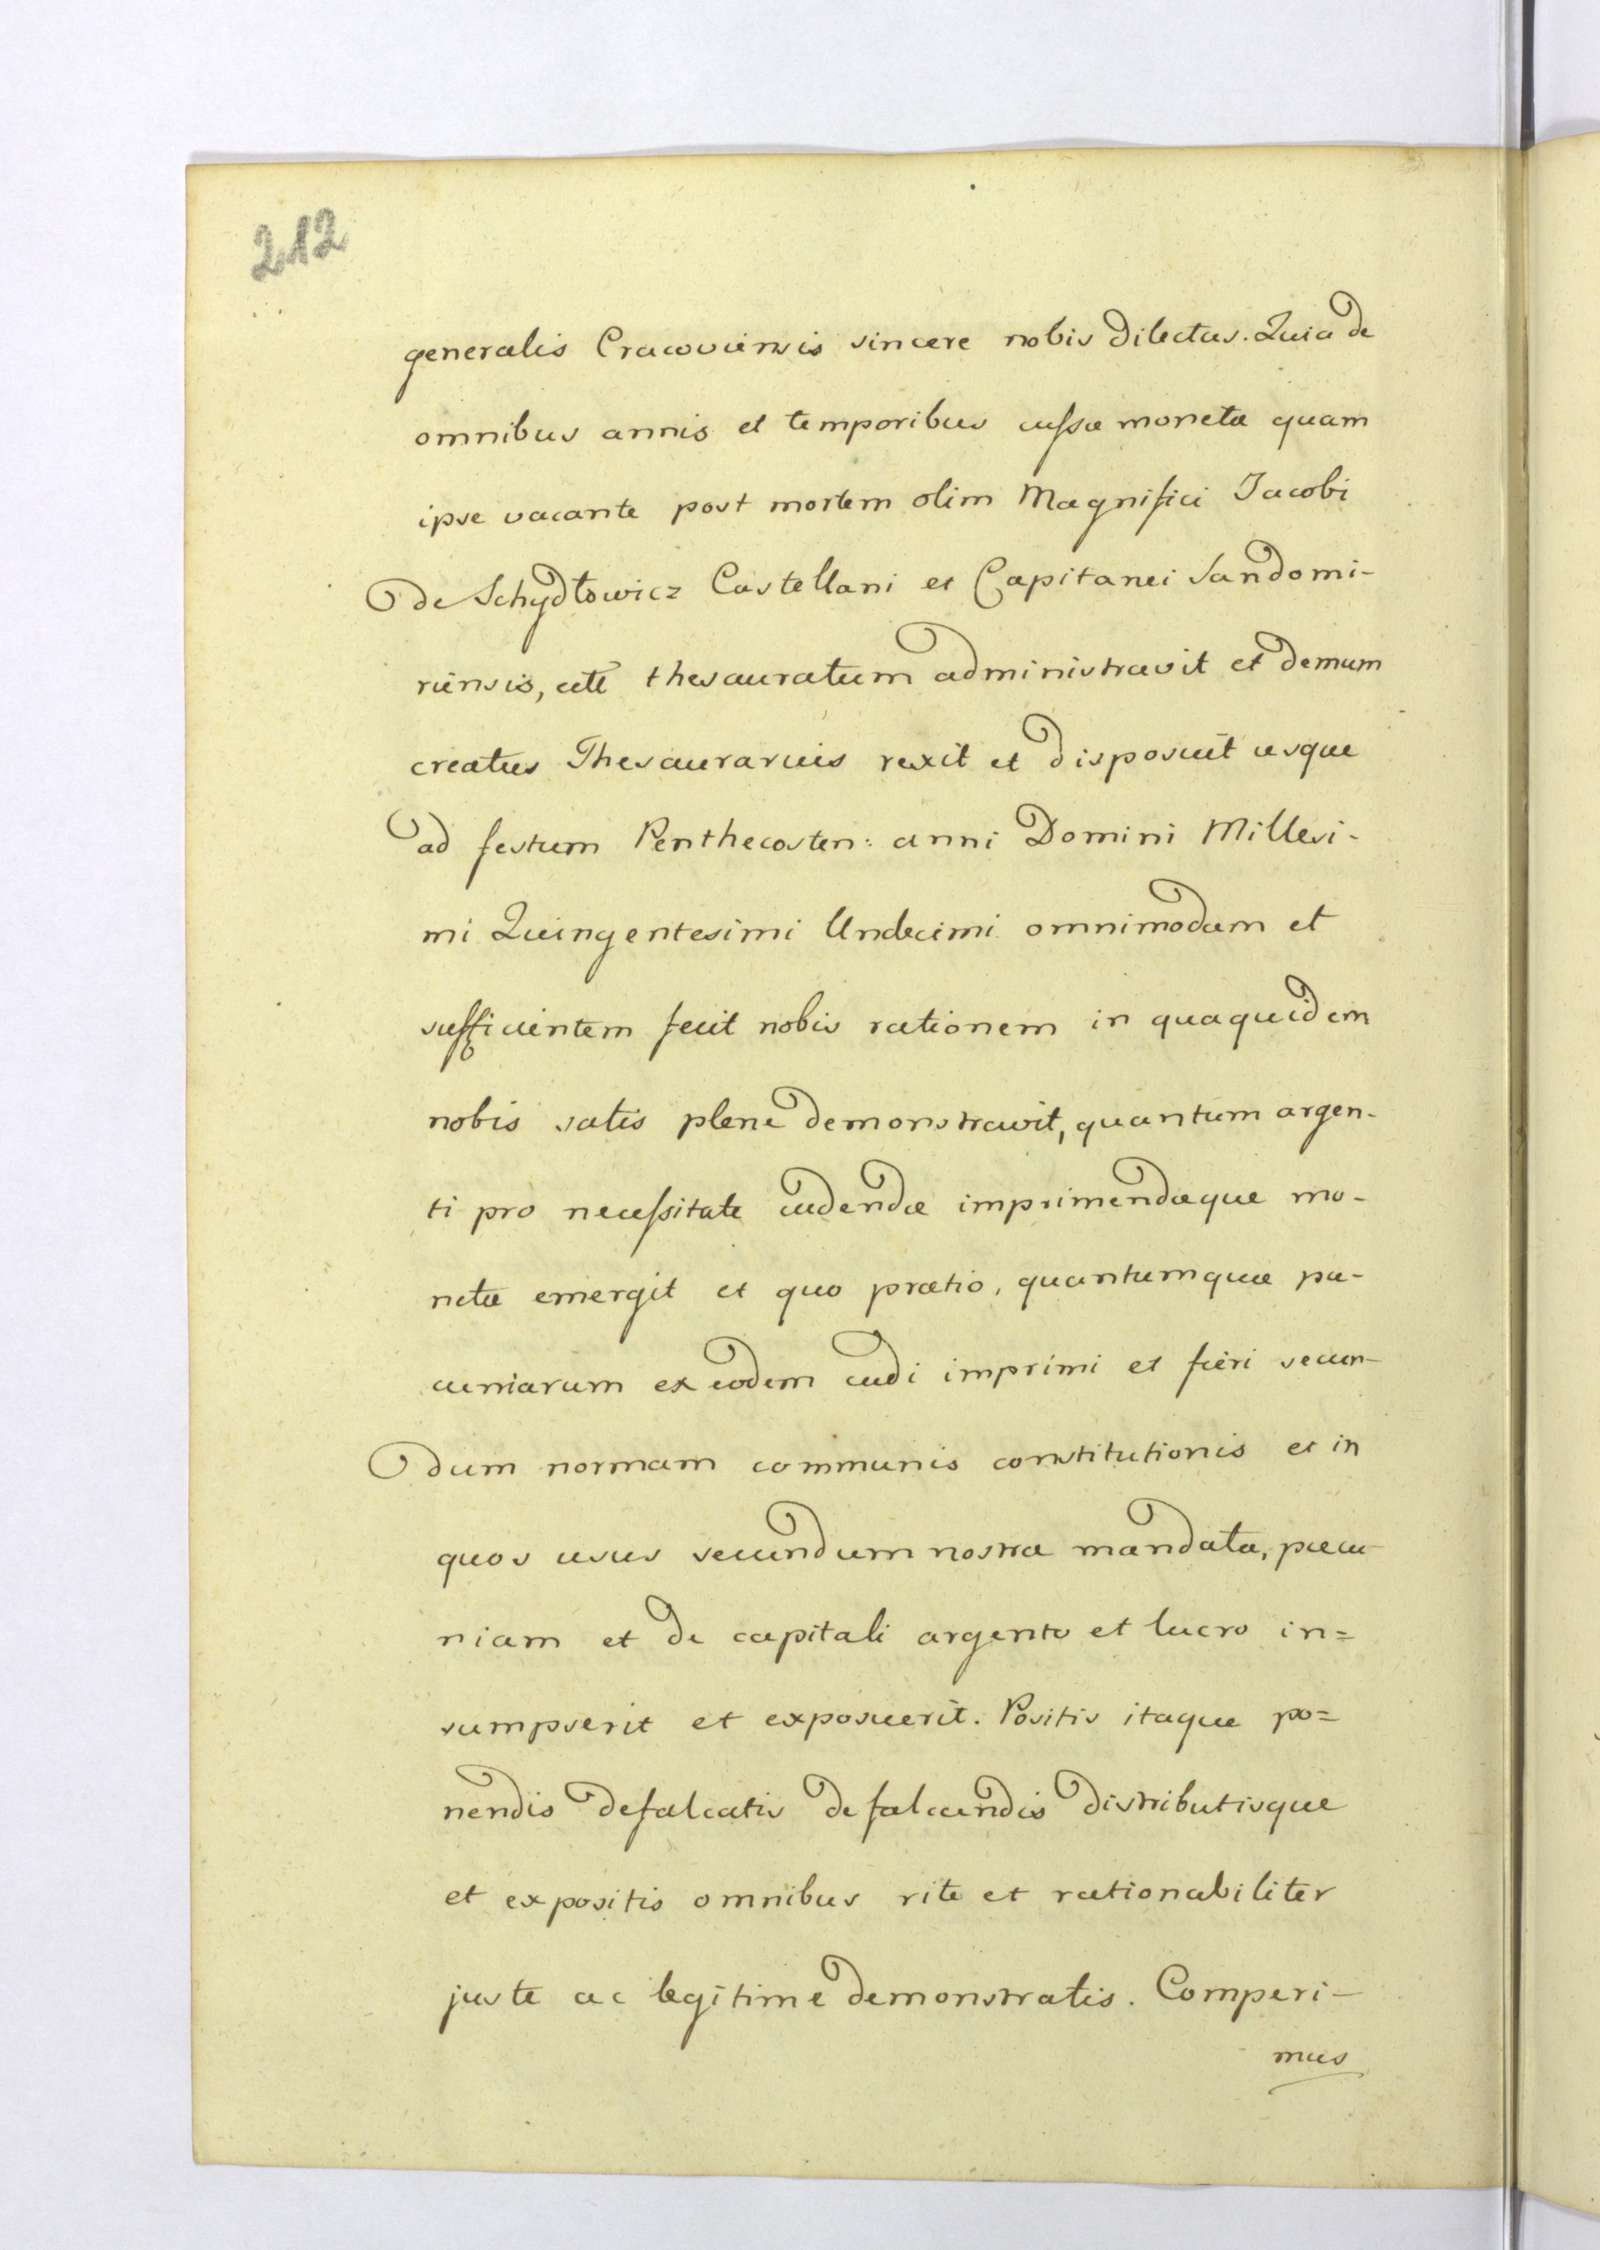 212
generalis Cracoviensis sincere nobis dilectus. Quia de
omnibus annis et temporibus cussæ monetæ quam
ipse vacante post mortem olim Magnifici Jacobi
de Schydłowicz Castellani et Capitanei Sandomi-
riensis, thesauratum administravit et demum
creatus Thesaurarius rexit et disposuit usque
ad festum Penthecosten: anni Domini Millesi-
mi Quingentesimi Undecimi omnimodam et
sufficientem fecit nobis rationem in quaquidem
nobis satis plene demonstravit, quantum argen-
ti pro necessitate cudendæ imprimendæque mo-
netæ emergit et quo prætio, quantumque pæ-
cuniarum ex eodem cudi imprimi et fieri secun-
dum normam communis constitutionis et in
quos usus secundum nostra mandata, pæcu-
niam et de capitali argento et lucro in=
sumpserit et exposuerit. Positis itaque po=
nendis defalcatis defalcandis distributisque
et expositis omnibus rite et rationabiliter
juste ac legitime demonstratis. Comperi-
mus